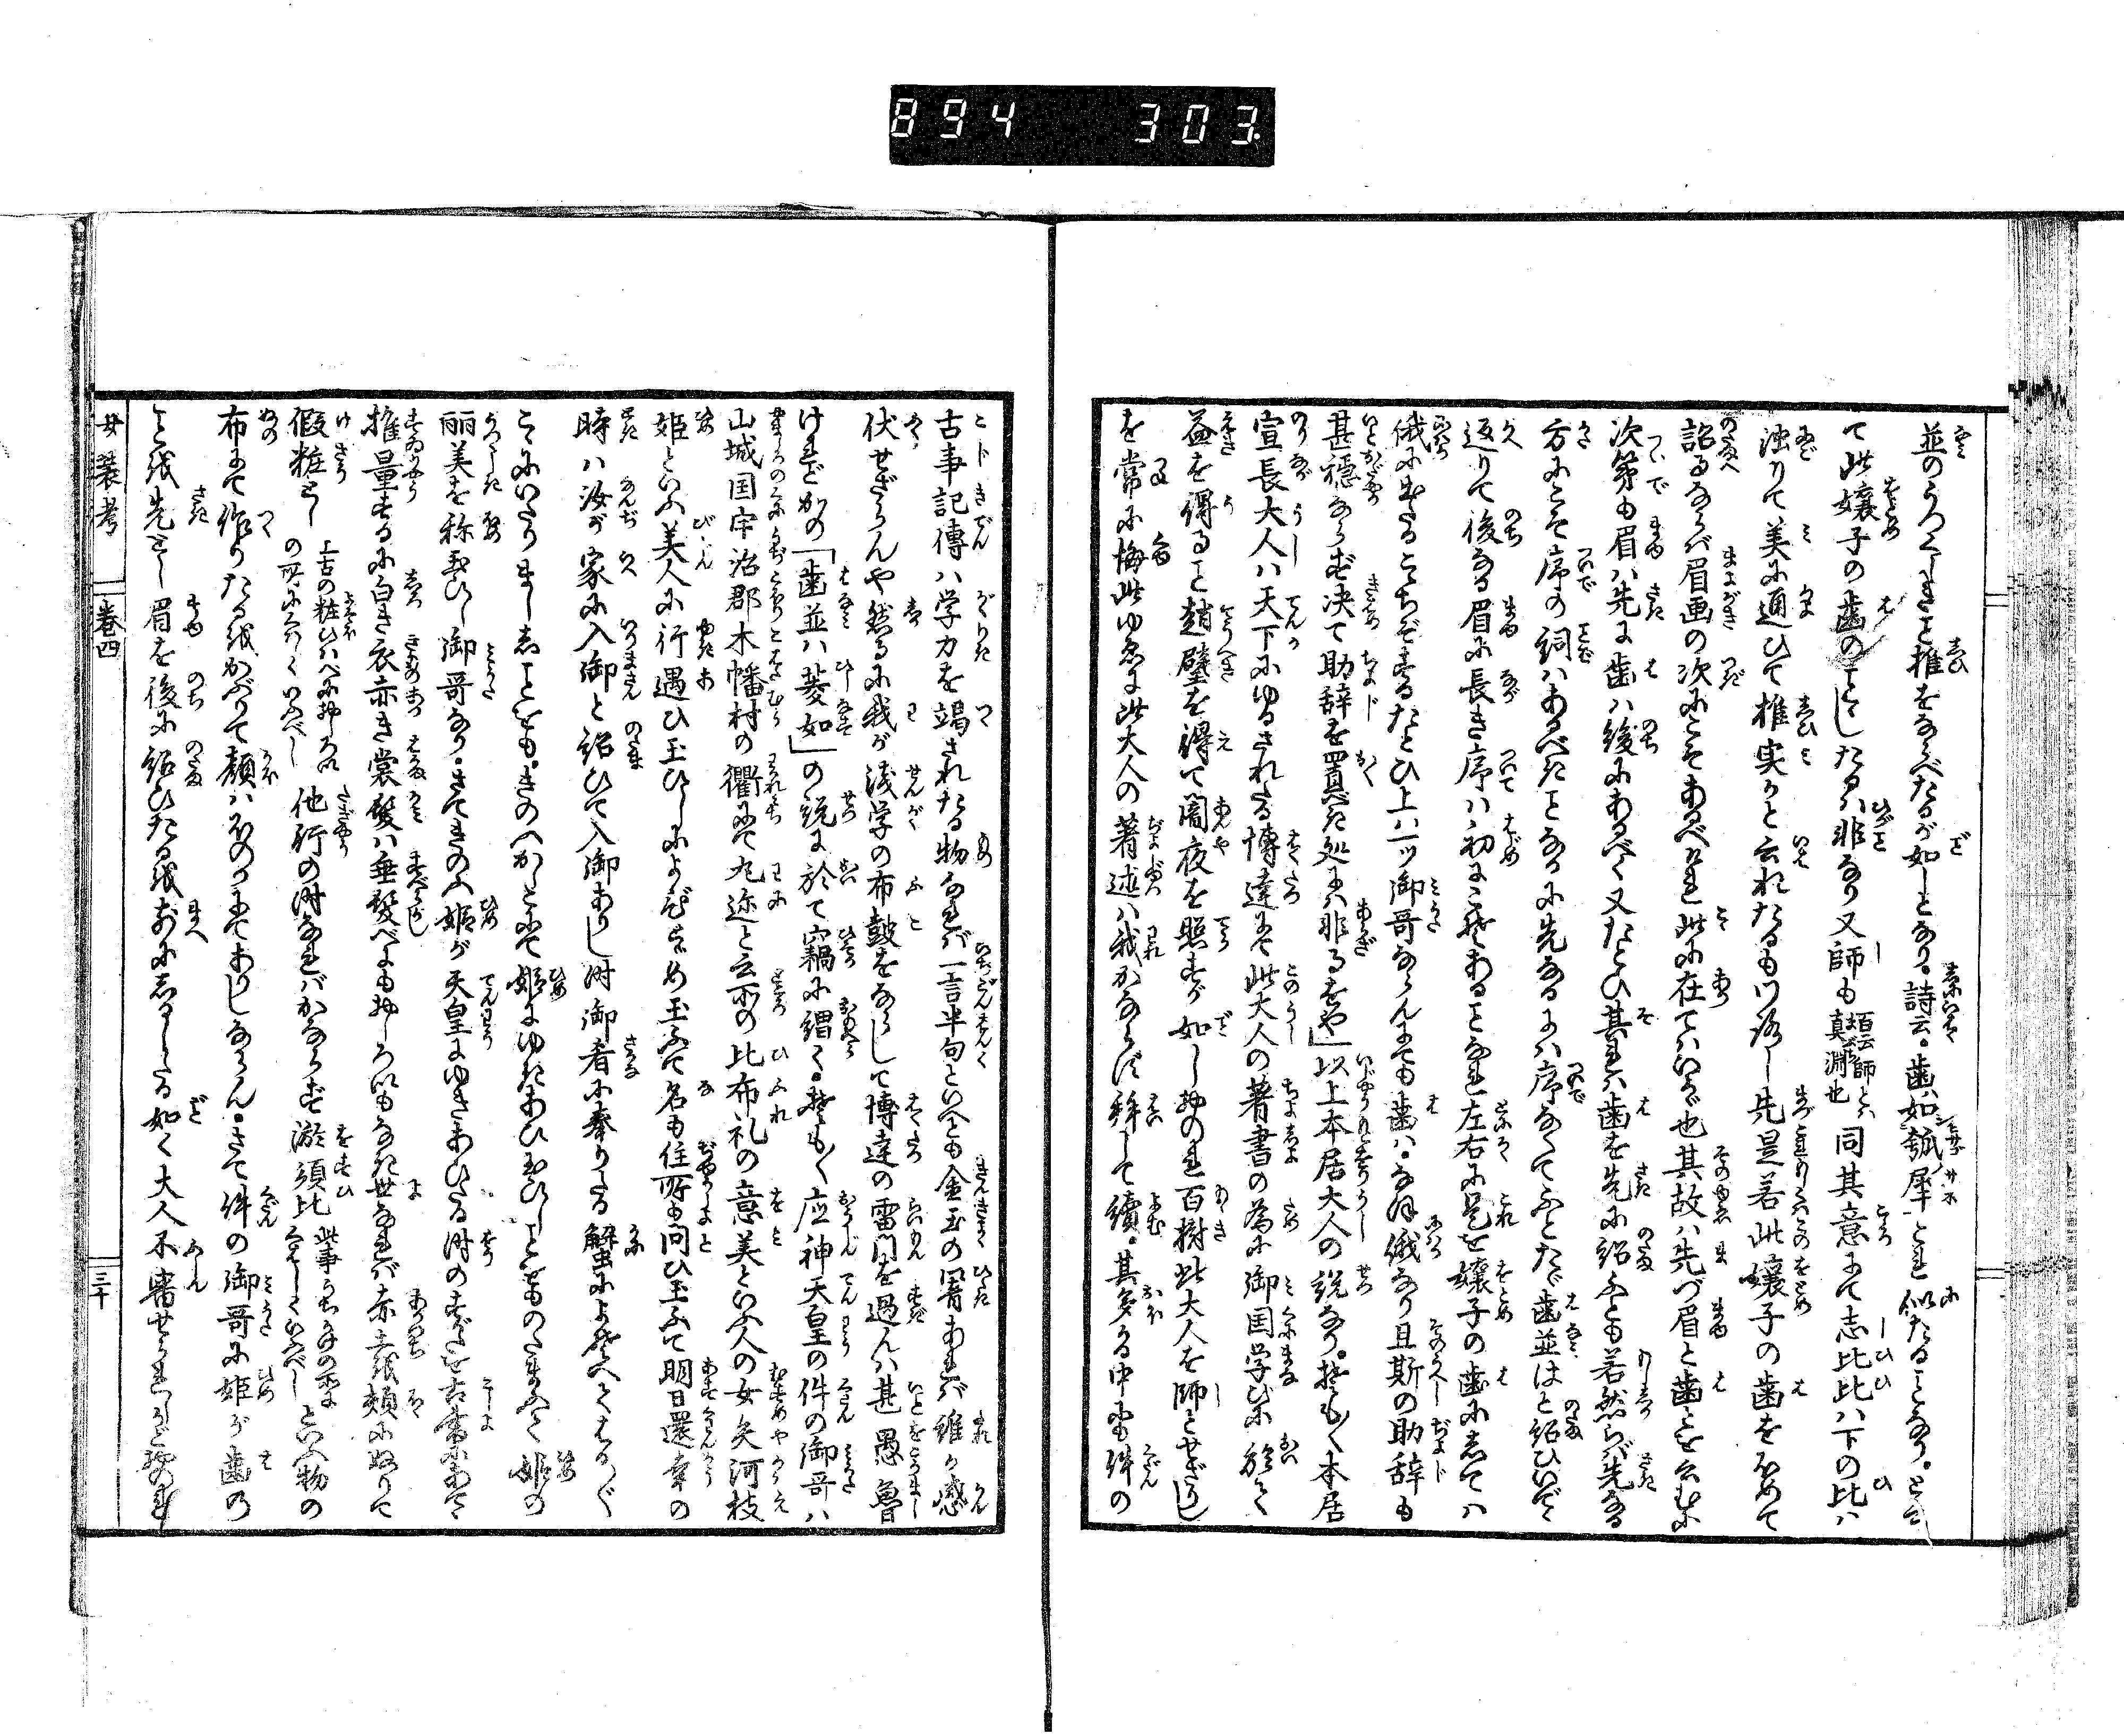 894 303
並のうつくしきこと椎をならべたるが如しとなり。詩云。歯ハ如瓠犀とに似たることなり。とて
て此嬢子の歯のことゝしたるハ非なり又師も 百云師とハ真淵也 同其意にて志比比ハ下の比ハ
濁りて美に通ひて椎実かと云れたるもいかゞし先是若此嬢子の歯をほめて
詔るならバ眉画の次にこそあるべけれ此に在てハいかゞ也其故ハ先づ眉と歯とを云むに
次第も眉ハ先に歯ハ後にあるべく又たとひ其れハ歯を先に詔ふとも若然らバ先なる
方にこそ序の詞ハあるべきことなるに先なるにハ序なくてふとたゞ歯並はと詔ひいでゝ
返りて後なる眉に長き序ハ初にこそあることなれ左右に是を嬢子の歯にしてハ
俄にきたるこゝちぞするたとひ上ハ一ッ御哥ならんにても歯ハ。なほ俄なり且斯の助辞も
甚穏ならず决て助辞を置べき処にハ非るをや」以上本居大人の説なり。そも〳〵本居
宣長大人ハ天下にゆるされたる博達にて此大人の著書の為に御国学びに於て
益を得ること趙璧を得て闇夜を照すが如しおのれ百樹此大人を師とせざりし
を常に悔此ゆゑに此大人の著述ハ我かならず拜して續。其多かる中にも件の
古事記傳ハ学力を竭されたる物なれバ一言半句といへとも金玉の署あれバ誰か感
伏せざらんや然るに我が浅学の布鼓をならして博達の雷門を過んハ甚愚魯
けれどかの「歯並ハ菱如」の説に於て竊に謂く。そも〳〵応神天皇の件の御哥ハ
山城国宇治郡木幡村の衢にて丸迩と云所の比布礼の意美といふ人の女矢河枝
姫といふ美人に行遇ひ玉ひしによびとゞめ玉ふて名も住所も問ひ玉ふて明日還幸の
時ハ汝が家に入御と詔ひて入御ありし時御肴に奉りたる蟹によそへてはるか〴〵
こゝにいたりましゝことをも。きのへかとにて姫にゆきあひ玉ひしことをものたまふて姫の
丽美を称玉ひし御哥なり。さてきのふ姫が天皇にゆきあひたる時のすがたを古書にあはせ
推量するに白き衣赤き裳髪ハ垂髪べにもおしろいもなき世なれバ赤土を頬にぬりて
假粧とし 上古の粧ひハべにおしろいの所にくはしくいふべし 他行の時なれバかならず淤須比 此事うちかけの所にくはしくいふべし といふ物の
布にて作りたるをかぶりて顔ハほのかにてありしならん。さて件の御哥に姫が歯の
ことを先とし眉を後に詔ひたるを前にしるしたる如く大人不審せられしかどおのれ
女装考 巻四 三十